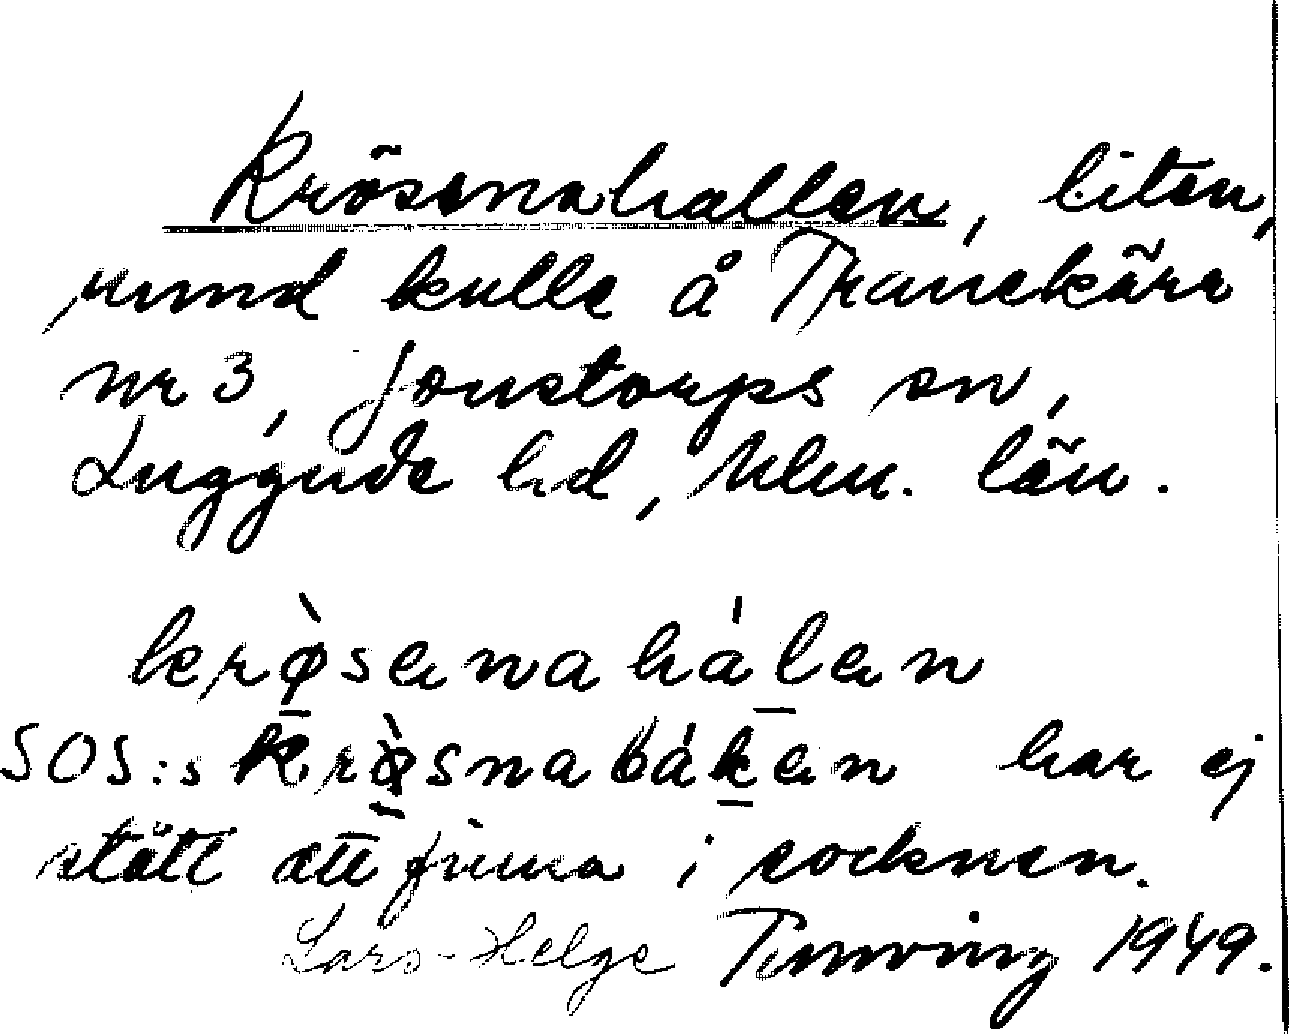 Krösenahallen, liten,
rund kulle å Tranekärr
nr 3, Jonstorps sn,
Luggude hd, Mlm. län.
krø̀senahálen
SOS:s krø̀snabáken har ej
stått att finna i socknen.
Lars-Helge Tunving 1949.